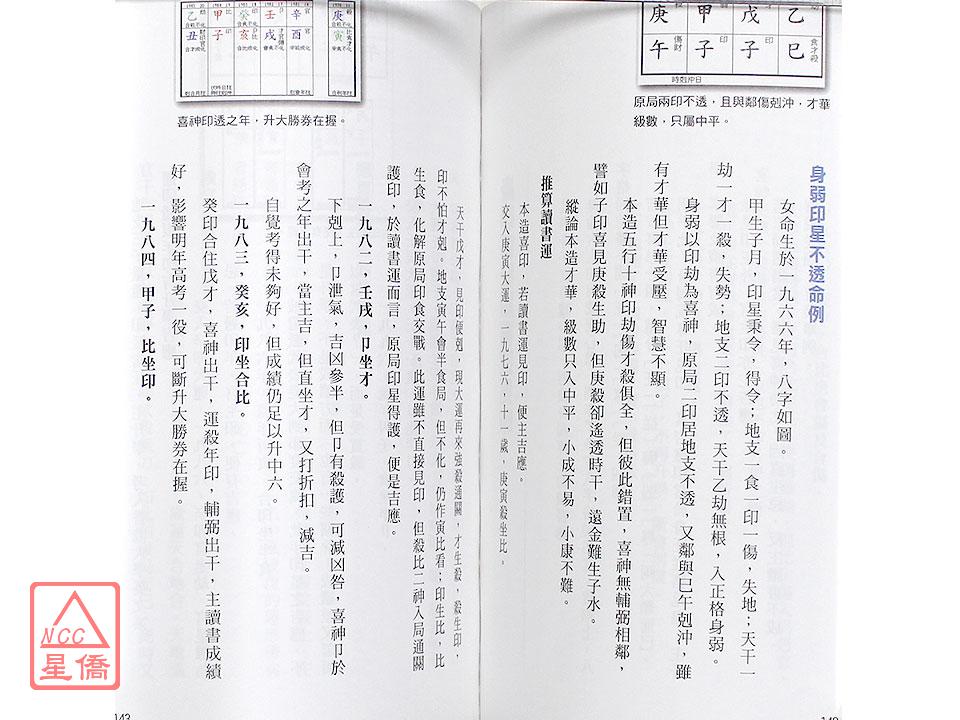 庚 甲 戊 乙
午 子 子 巳
傷財 印 印 食才殺
時剋沖日
原局兩印不透，且與鄰傷剋沖，才華
級數，只屬中平。
身弱印星不透命例
女命生於一九六六年，八字如圖。
甲生子月，印星秉令，得令；地支一食一印一傷，失地；天干一
劫一才一殺，失勢；地支二印不透，天干乙劫無根，入正格身弱。
身弱以印劫為喜神，原局二印居地支不透，又鄰與巳午剋沖，雖
有才華但才華受壓，智慧不顯。
本造五行十神印劫傷才殺俱全，但彼此錯置，喜神無輔弼相鄰，
譬如子印喜見庚殺生助，但庚殺卻遙透時干，遠金難生子水。
縱論本造才華，級數只入中平，小成不易，小康不難。
推算讀書運
本造喜印，若讀書運見印，便主吉應。
交入庚寅大運，一九七六，十一歲，庚寅殺坐比。
乙 甲 癸 壬 辛 庚
丑 子 亥 戌 酉 寅
喜神印透之年，升大勝券在握。
天干戊才，見印便剋，現大運再來強殺通關，才生殺，殺生印，
印不怕才剋。地支寅午會半食局，但不化，仍作寅比看；印生比，比
生食，化解原局印食交戰。此運雖不直接見印，但殺比二神入局通關
護印，於讀書運而言，原局印星得護，便是吉應。
一九八二，壬戌，卩坐才。
下剋上，卩泄氣，吉凶參半，但卩有殺護，可減凶咎，喜神卩於
會考之年出干，當主吉，但直坐才，又打折扣，減吉。
自覺考得未夠好，但成績仍足以升中六。
一九八三，癸亥，印坐合比。
癸印合住戊才，喜神出干，運殺年印，輔弼出干，主讀書成績
好，影響明年高考一役，可斷升大勝券在握。
一九八四，甲子，比坐印。
143
NCC
星僑